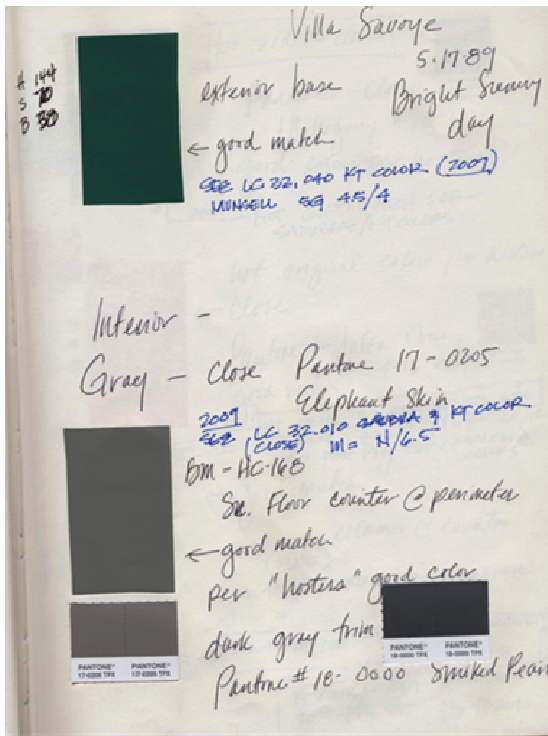 Villa Savoye
5.17.89
Bright Sunny
day
H 144
S 70
B 30
exterior base
← good match
SEE LC 32.040 KT COLOR (2007)
MUNSELL 5G 4.5/4
Interior -
Gray - Close Pantone 17-0205
Elephant Skin
2007
SEE LC 32.010 & KT COLOR
(CLOSE) M= N/6.5
BM - HC-168
Floor counter @ perimeter
← good match
per "hostess" good color
dark gray trim
PANTONE® PANTONE®
17-0205 TPX 17-0205 TPX
PANTONE® PANTONE®
18-0000 TPX 18-0000 TPX
Pantone # 18-0000 Smoked Pearl